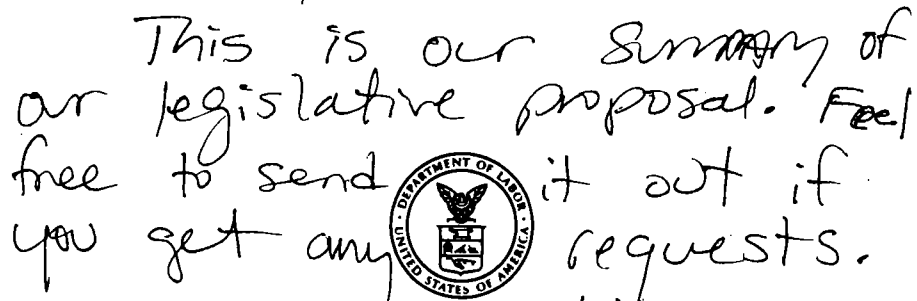 This is our summary of
our legislative proposal. Feel
free to send it out if
you get any requests.
DEPARTMENT OF LABOR
UNITED STATES OF AMERICA